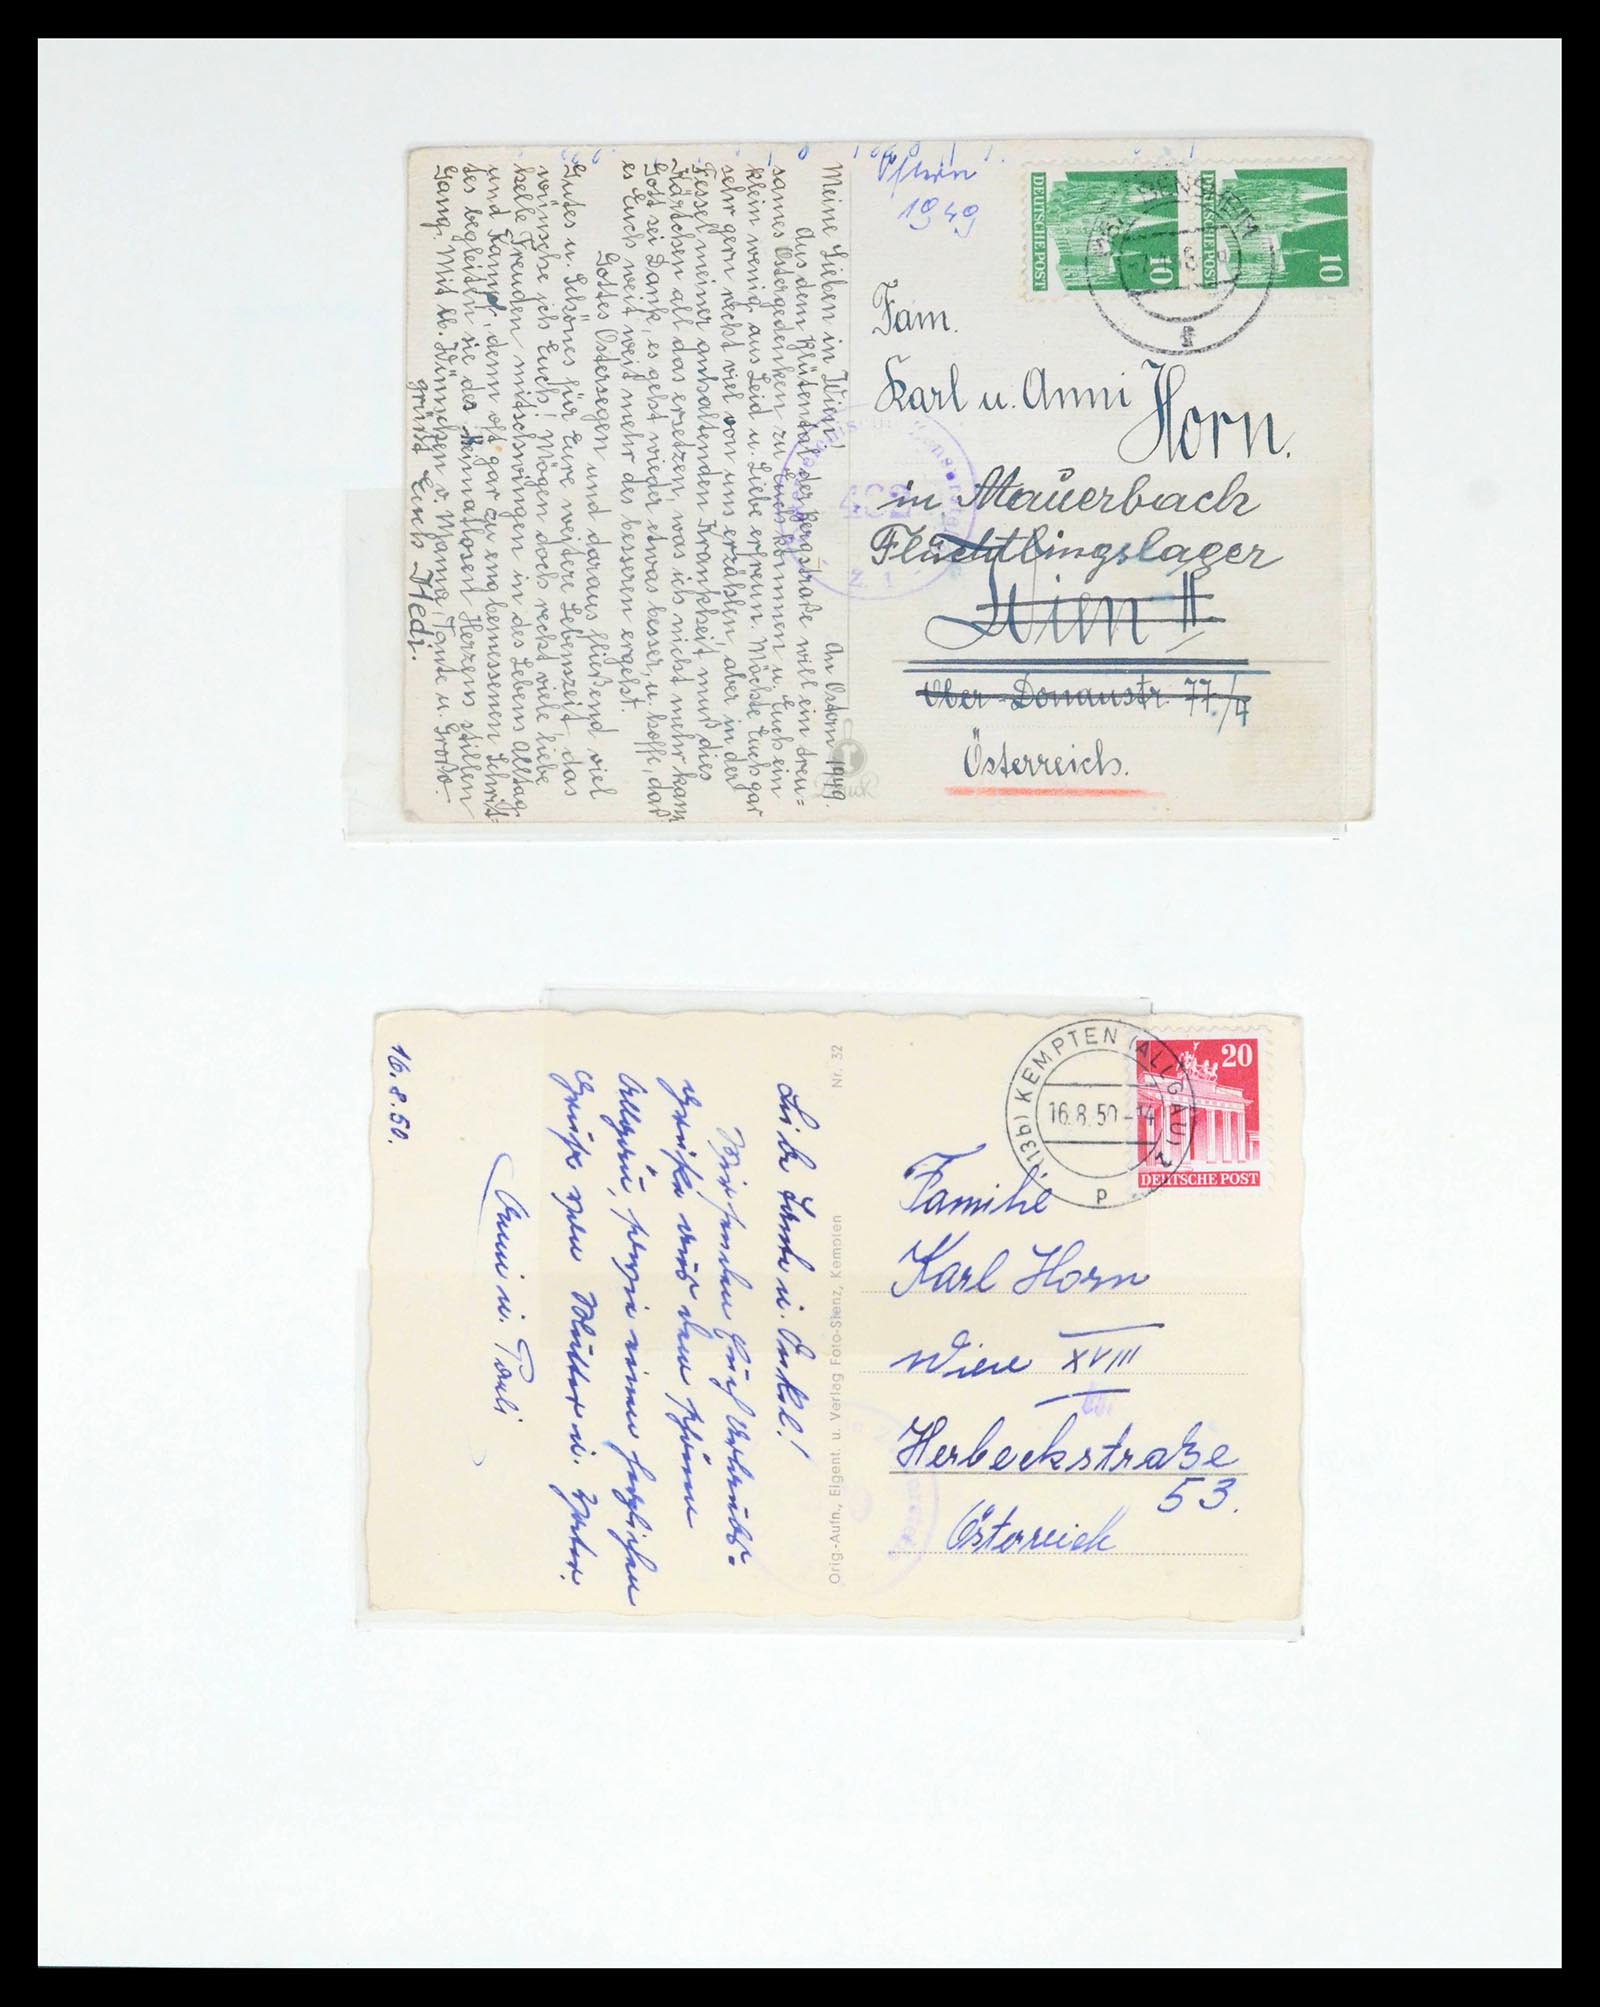 Ostern
1949
DEUTSCHE POST
10
DEUTSCHE POST
10
BENSHEIM
Fam.
Karl u. Anni Horn.
in Mauerbach
Flüchtlingslager
Wien II
Ober-Donaustr. 77/4
Österreich.
492
An Ostern 1949.
Meine Lieben in Wien!
Aus dem Blütental der Bergstraße will ein treu=
sames Ostergedenken zu Euch kommen u. Euch ein
klein wenig aus Leid u. Liebe erfreun. Möchte Euch gar
sehr gern recht viel von uns erzählen, aber in der
Fessel meiner anhaltenden Krankheit muß dies
Kärtchen all das ersetzen, was ich nicht mehr kann
Gott sei Dank, es geht wieder etwas besser, u. hoffe, daß
es Euch weit weit mehr des besseren ergeht.
Gottes Ostersegen und daraus fließend viel
Gutes u. Schönes für Eure weitere Lebenszeit, das
wünsche ich Euch! Mögen doch recht viele liebe
helle Freuden mitschwingen in des Lebens Alltag
und Kampf, denn oft gar zu eng bemessener Schritt=
tes begleiten sie des heimatlosen Herzens stillen
Gang. Mit lb. Wünschen v. Mama, Tante u. Großo.
grüßt Euch Hedi.
20
DEUTSCHE POST
(13b) KEMPTEN (ALLGÄU) 2
16.8.50-14
p
Familie
Karl Horn
Wien XVIII
Herbeckstraße
53.
Österreich
Nr. 32
Orig-Aufn., Eigent. u. Verlag Foto-Sienz, Kempten
Liebe Tante u. Onkel!
Wir senden Euch Urlaubs=
grüße aus dem schönen
Allgäu, sowie einen herzlichen
Gruß von Mutter u. Vater.
Anni u. Pauli
16.8.50.